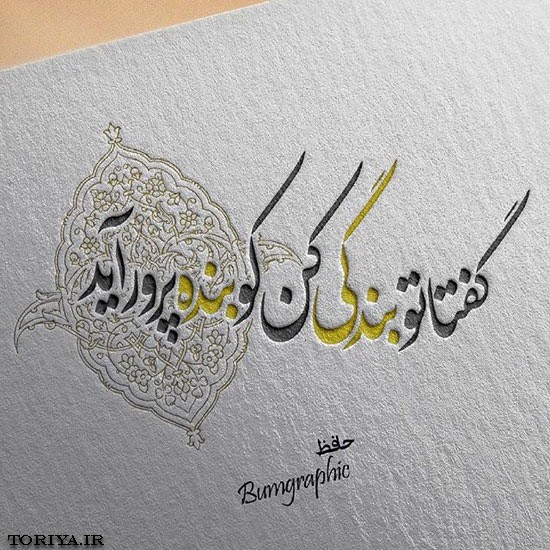 گفتا تو بندگی کن کو بنده پرور آید
حافظ
Bumgraphic
TORIYA.IR